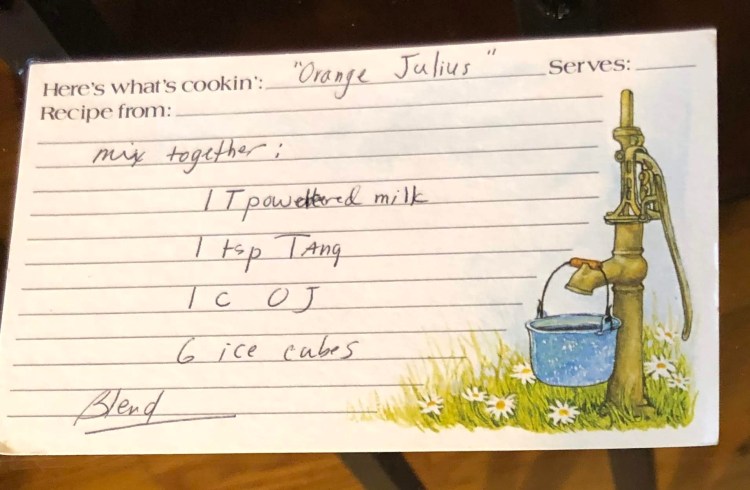 Here's what's cookin': "Orange Julius" Serves:
Recipe from:
mix together:
1 T powdered milk
1 tsp TAng
1 C OJ
6 ice cubes
Blend